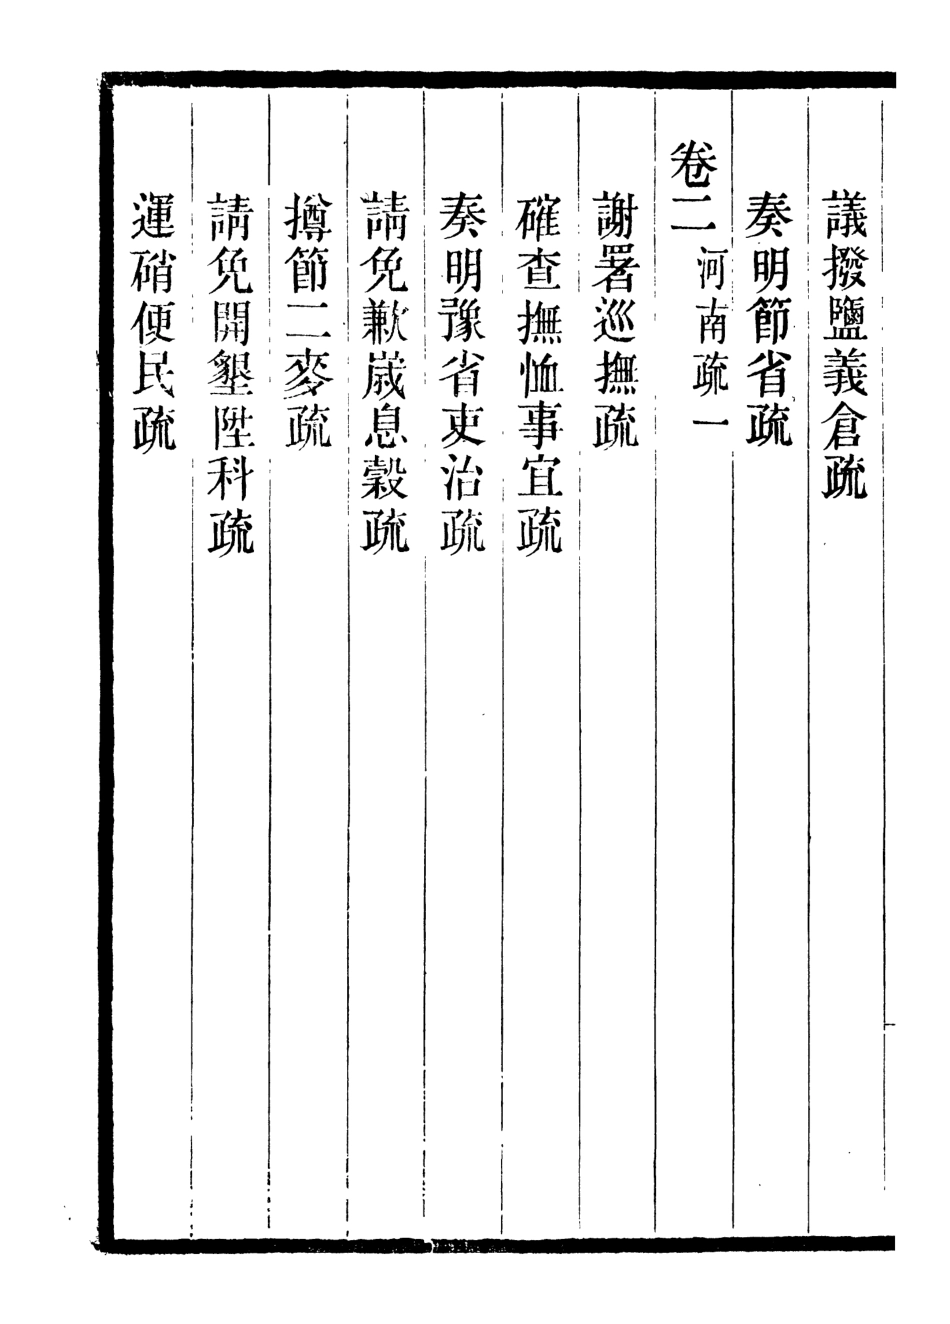 議撥鹽義倉疏
奏明節省疏
卷二 河南疏一
謝署巡撫疏
確查撫恤事宜疏
奏明豫省吏治疏
請免歉歲息穀疏
撙節二麥疏
請免開墾陞科疏
運硝便民疏